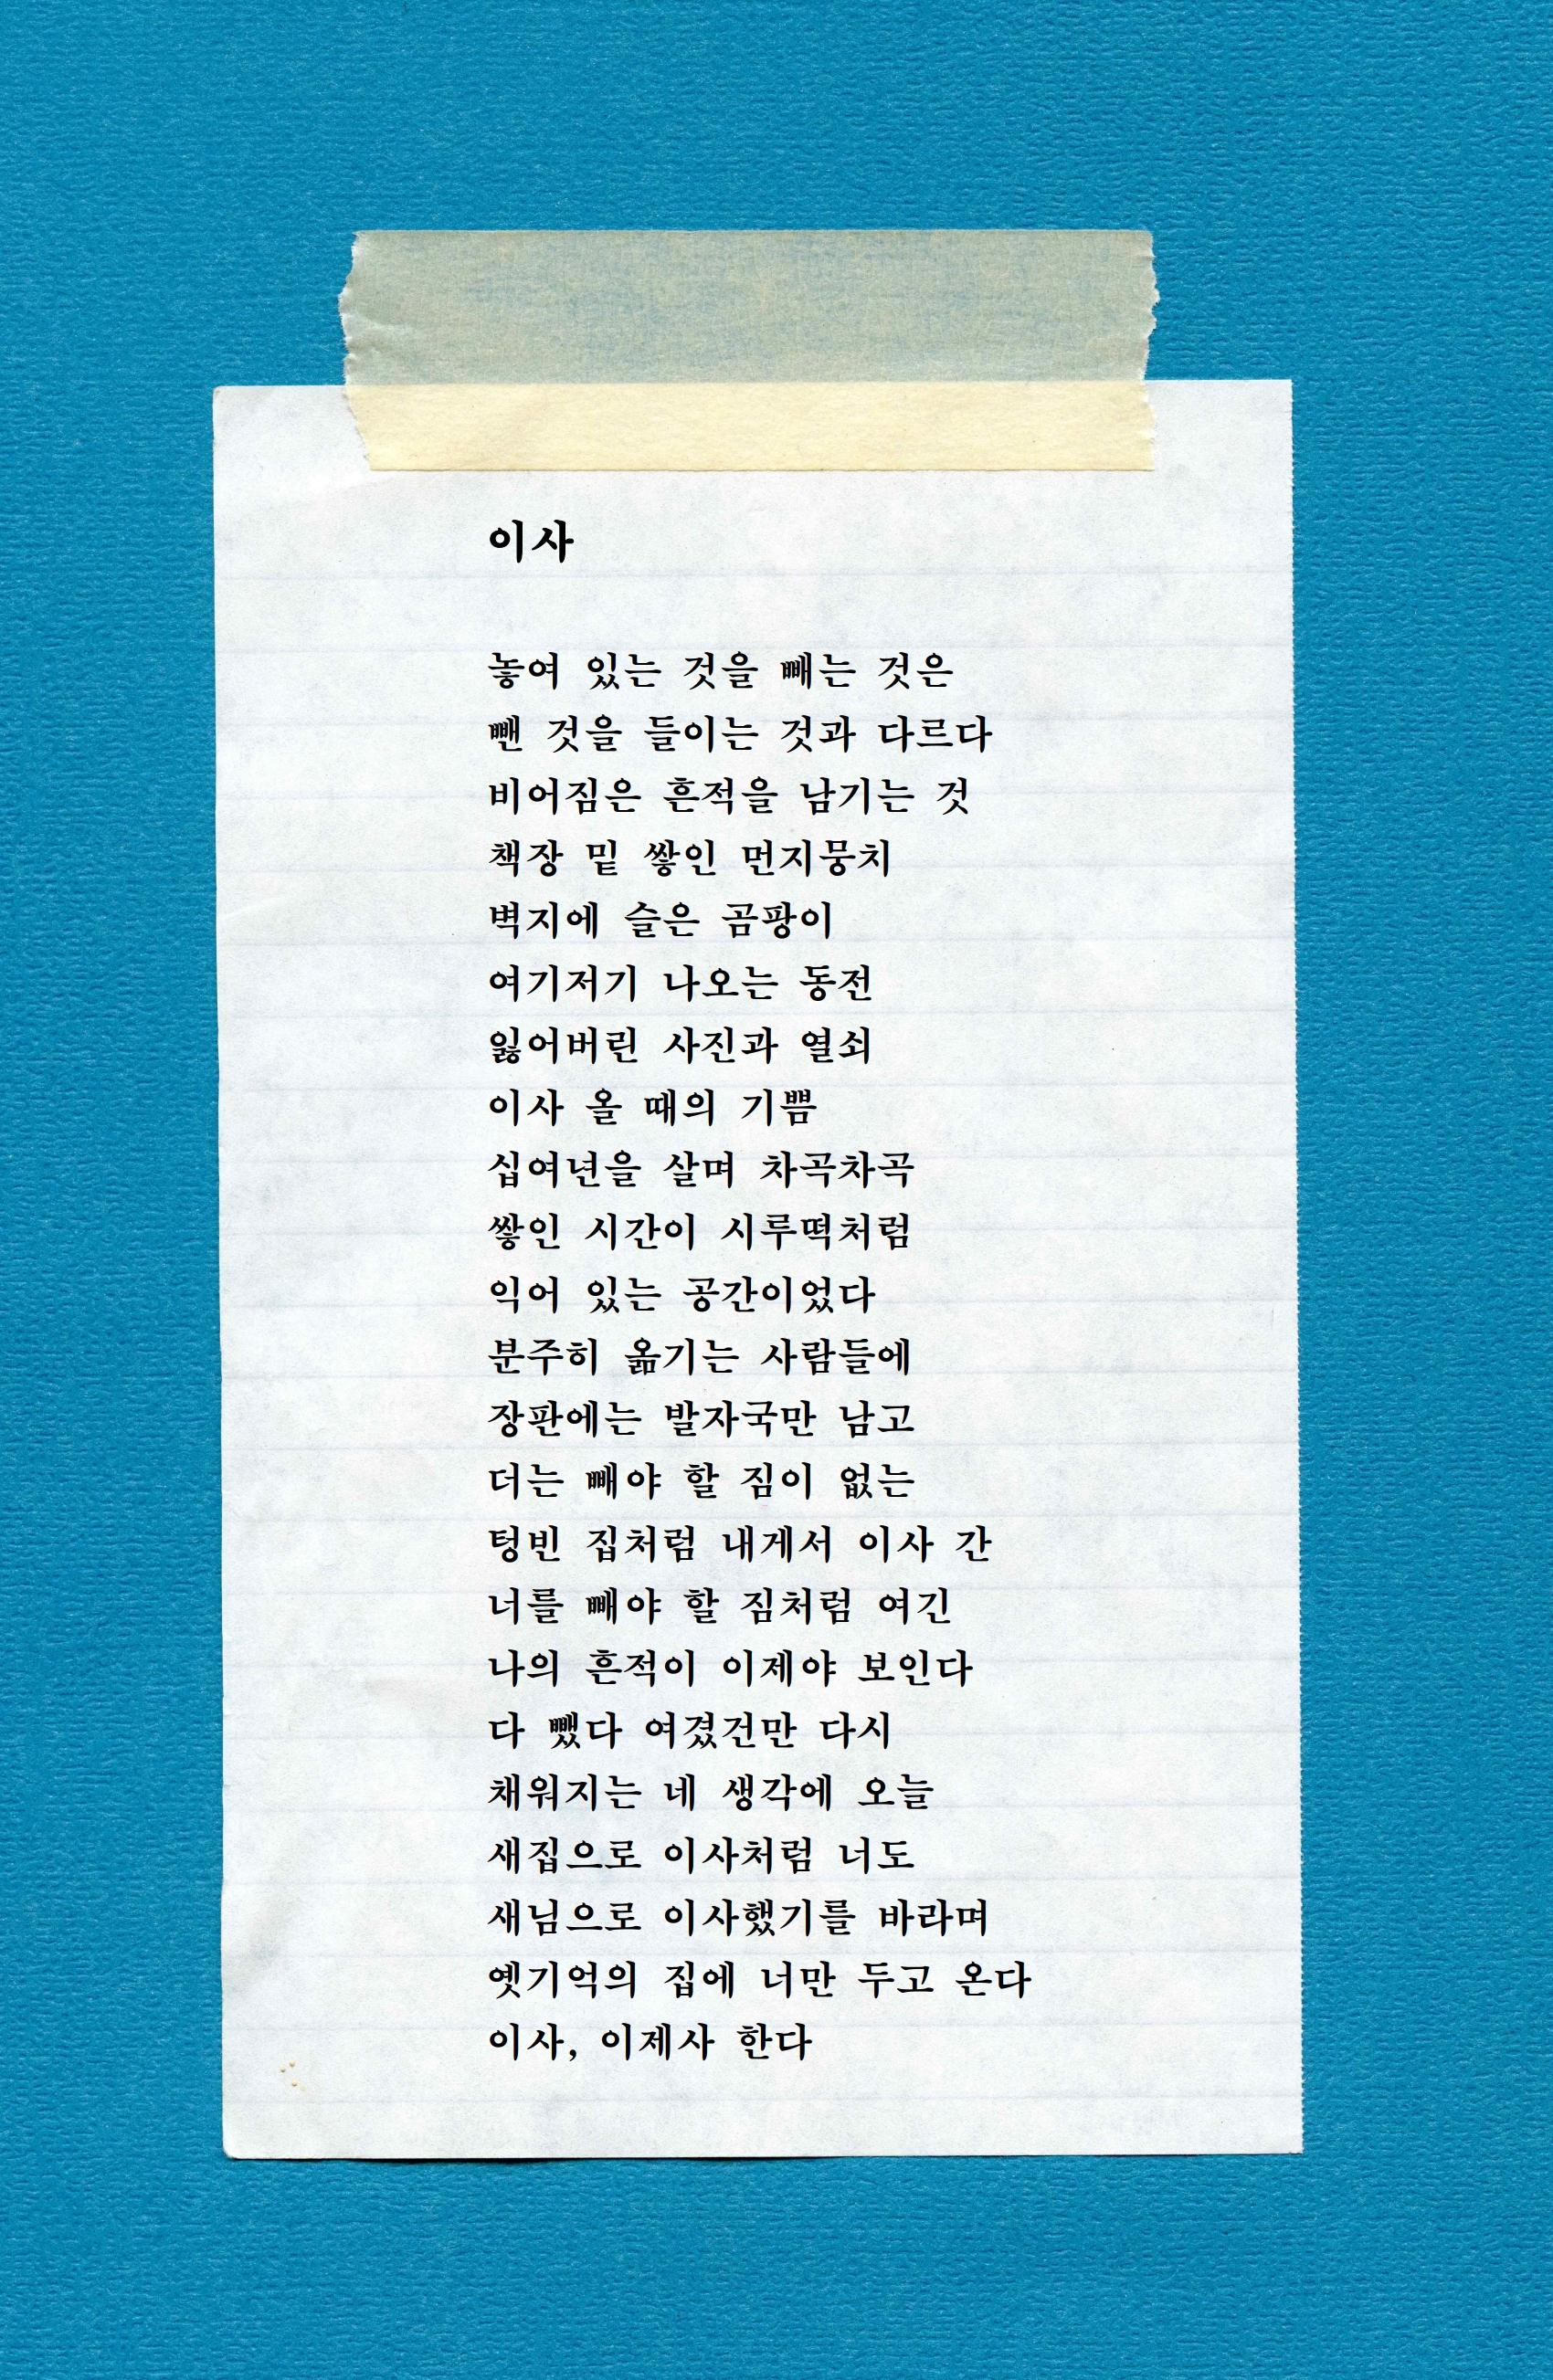 이사
놓여 있는 것을 빼는 것은
뺀 것을 들이는 것과 다르다
비어짐은 흔적을 남기는 것
책장 밑 쌓인 먼지뭉치
벽지에 슬은 곰팡이
여기저기 나오는 동전
잃어버린 사진과 열쇠
이사 올 때의 기쁨
십여년을 살며 차곡차곡
쌓인 시간이 시루떡처럼
익어 있는 공간이었다
분주히 옮기는 사람들에
장판에는 발자국만 남고
더는 빼야 할 짐이 없는
텅빈 집처럼 내게서 이사 간
너를 빼야 할 짐처럼 여긴
나의 흔적이 이제야 보인다
다 뺐다 여겼건만 다시
채워지는 네 생각에 오늘
새집으로 이사처럼 너도
새님으로 이사했기를 바라며
옛기억의 집에 너만 두고 온다
이사, 이제사 한다